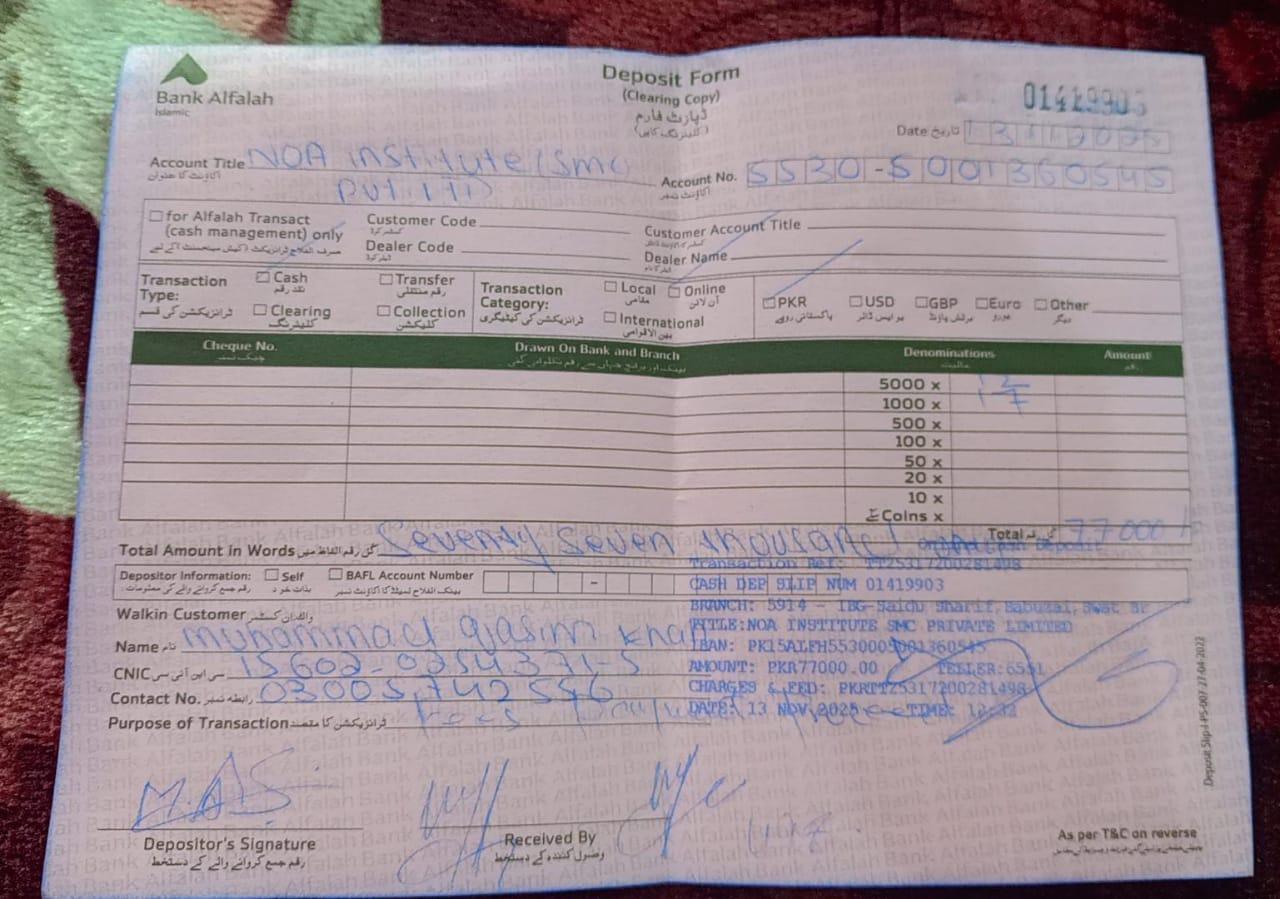 Bank Alfalah
Islamic
Deposit Form
(Clearing Copy)
ڈپازٹ فارم
(کلیئرنگ کاپی)
01419903
Date تاریخ
Account Title NOA institute (SMC
اکاؤنٹ کا عنوان
PVT LTD
Account No. 5530-5001360545
اکاؤنٹ نمبر
for Alfalah Transact
(cash management) only
Customer Code
Dealer Code
Customer Account Title
Dealer Name
Transaction Type:
ٹرانزیکشن کی قسم
Cash
نقد رقم
Transfer
رقم منتقلی
Clearing
کلیئرنگ
Collection
کلیکشن
Transaction Category:
ٹرانزیکشن کی کیٹیگری
Local
مقامی
Online
آن لائن
International
بین الاقوامی
PKR
پاکستانی روپے
USD
یو ایس ڈالر
GBP
برطانوی پاؤنڈ
Euro
یورو
Other
دیگر
Cheque No.
Drawn On Bank and Branch
Denominations
مالیت
Amount
رقم
5000 x 12
1000 x 17
500 x
100 x
50 x
20 x
10 x
Coins x
Total 77000/-
Total Amount in Words کل رقم الفاظ میں Seventy Seven thousand
Depositor Information:
Self
بذات خود
BAFL Account Number
Walkin Customer
Name نام Muhammad Qasim Khan
CNIC سی این آئی سی 15602-0254371-5
Contact No. رابطہ نمبر 03005742556
Purpose of Transaction ٹرانزیکشن کا مقصد
Transaction Ref: TT25317200281498
CASH DEP SLIP NUM 01419903
BRANCH: 5914 - IBG-Saidu Sharif, Babuzai, Swat Br
TITLE:NOA INSTITUTE SMC PRIVATE LIMITED
IBAN: PK15ALFH5530005001360545
AMOUNT: PKR77000.00 TELLER:6551
CHARGES & FED: PKRTT25317200281498
DATE: 13 NOV 2025 TIME: 12:32
Depositor's Signature
رقم جمع کروانے والے کے دستخط
Received By
وصول کنندہ کے دستخط
As per T&C on reverse
Deposit Slip-I-PS-007 27-04-2023